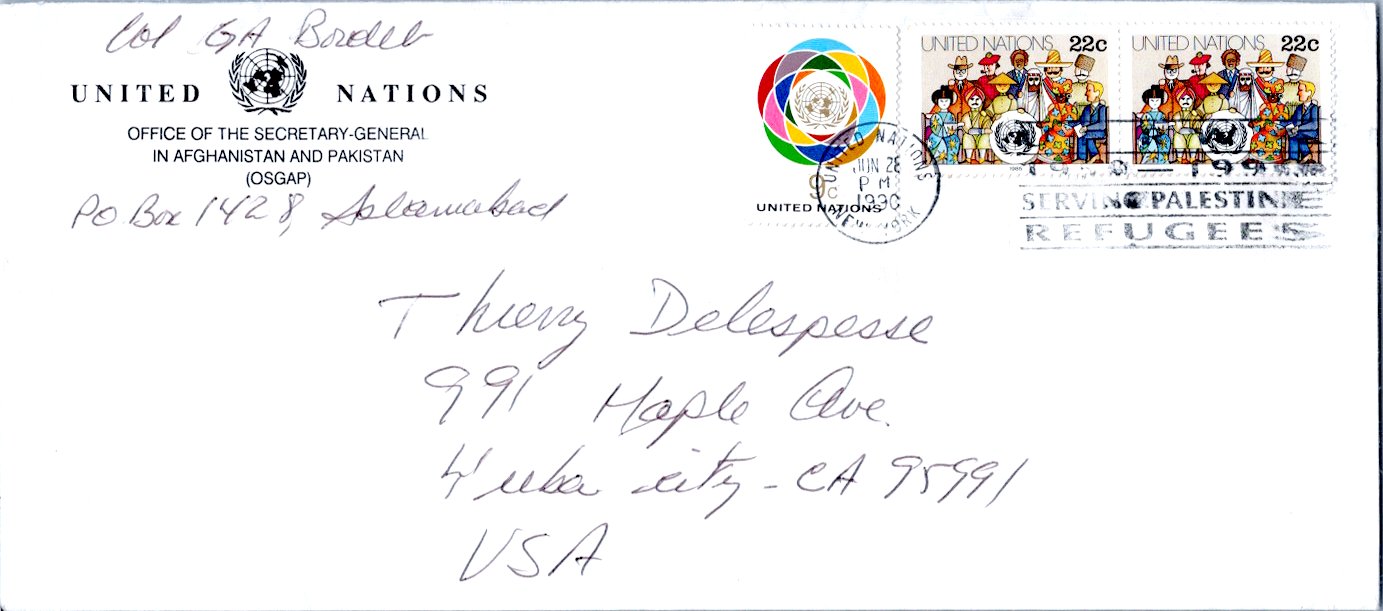 Col GA
UNITED NATIONS
OFFICE OF THE SECRETARY-GENERAL
IN AFGHANISTAN AND PAKISTAN
(OSGAP)
P.O. Box 1428, Islamabad
9c
UNITED NATIONS
UNITED NATIONS 22c
1985
UNITED NATIONS 22c
UNITED NATIONS
JUN 28
PM
1990
NEW YORK
SERVING PALESTINE
REFUGEES
Thierry Delespesse
991 Maple Ave.
Yuba city - CA 95991
USA